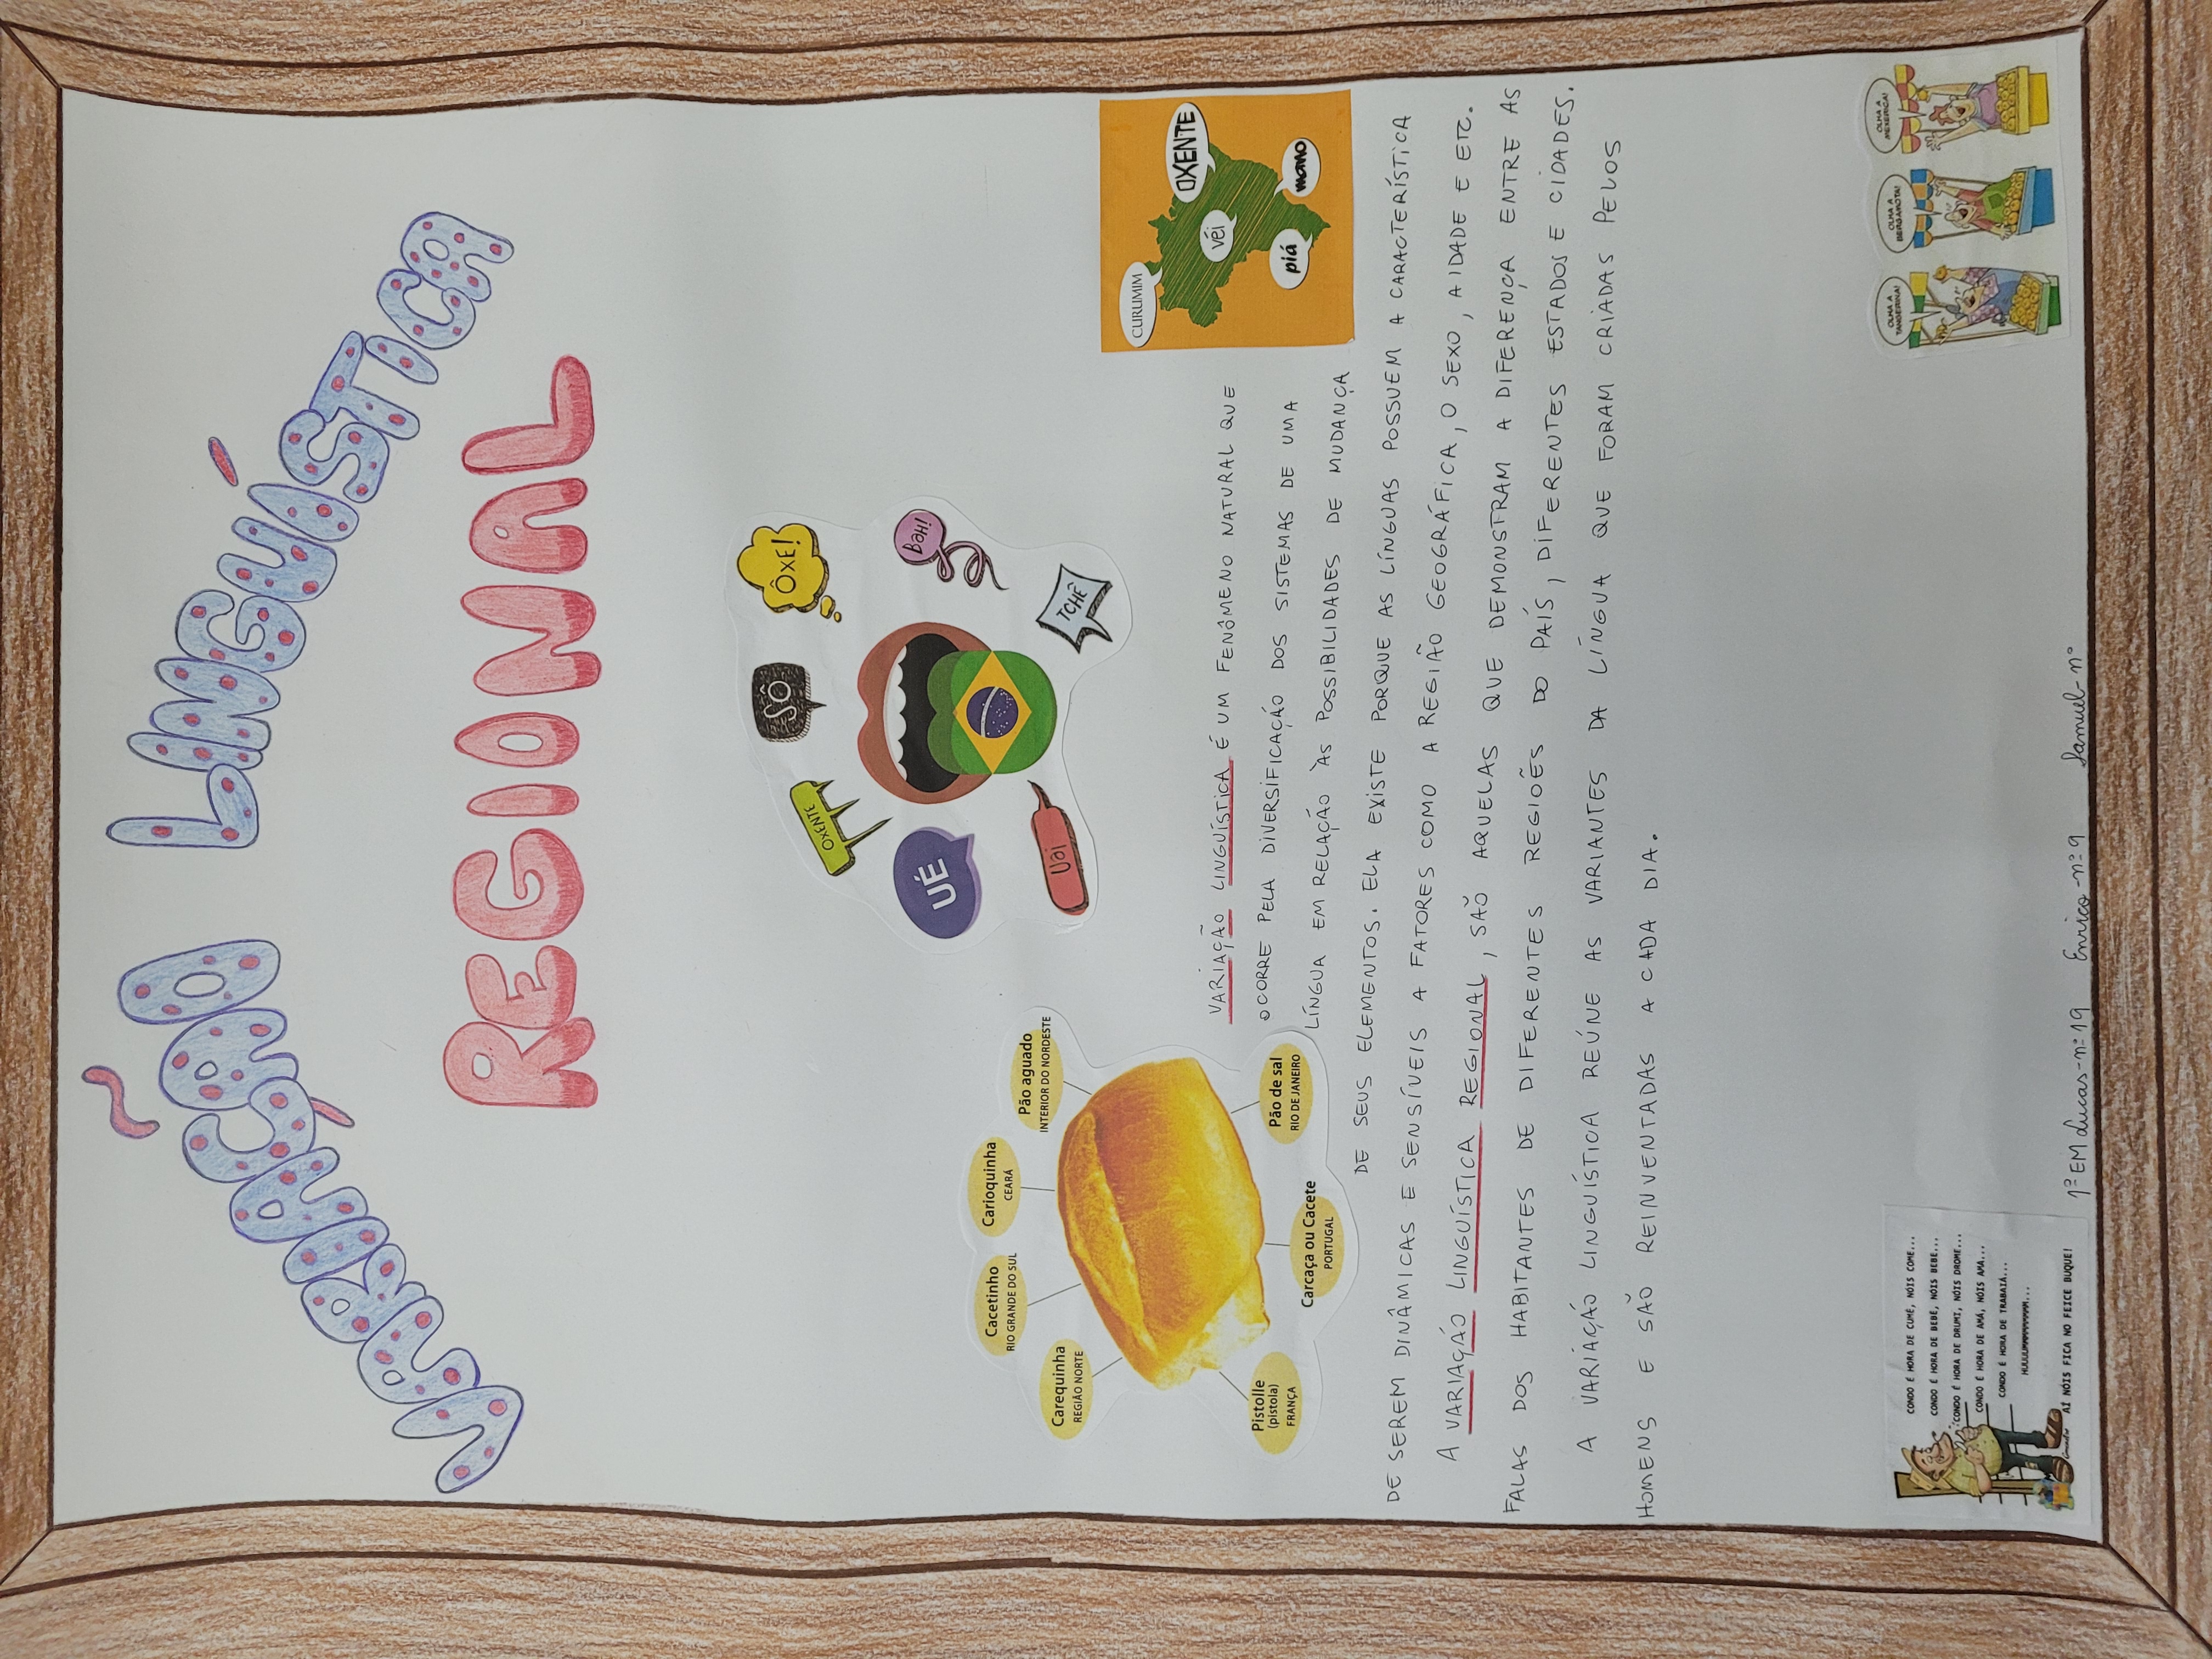 VARIAÇÃO LINGUÍSTICA
REGIONAL
OXENTE
SÔ
ÔXE!
UÉ
BaH!
Uai
TCHÊ
Cacetinho
RIO GRANDE DO SUL
Carioquinha
CEARÁ
Pão aguado
INTERIOR DO NORDESTE
Carequinha
REGIÃO NORTE
Pistolle
(pistola)
FRANÇA
Carcaça ou Cacete
PORTUGAL
Pão de sal
RIO DE JANEIRO
CURUMIM
OXENTE
véi
piá
mano
VARIAÇÃO LINGUÍSTICA É UM FENÔMENO NATURAL QUE
OCORRE PELA DIVERSIFICAÇÃO DOS SISTEMAS DE UMA
LÍNGUA EM RELAÇÃO ÀS POSSIBILIDADES DE MUDANÇA
DE SEUS ELEMENTOS. ELA EXISTE PORQUE AS LÍNGUAS POSSUEM A CARACTERÍSTICA
DE SEREM DINÂMICAS E SENSÍVEIS A FATORES COMO A REGIÃO GEOGRÁFICA, O SEXO, A IDADE E ETC.
A VARIAÇÃO LINGUÍSTICA REGIONAL, SÃO AQUELAS QUE DEMONSTRAM A DIFERENÇA ENTRE AS
FALAS DOS HABITANTES DE DIFERENTES REGIOẼS DO PAÍS, DIFERENTES ESTADOS E CIDADES.
A VARIAÇÃO LINGUÍSTICA REÚNE AS VARIANTES DA LÍNGUA QUE FORAM CRIADAS PELOS
HOMENS E SÃO REINVENTADAS A CADA DIA.
CONDO É HORA DE CUMÊ, NÓIS COME...
CONDO É HORA DE BEBÊ, NÓIS BEBE...
CONDO É HORA DE DRUMI, NÓIS DROME...
CONDO É HORA DE AMÁ, NÓIS AMA...
CONDO É HORA DE TRABAIÁ...
HUUUUMMMMMMMMM...
AÍ NÓIS FICA NO FEICE BUQUE!
OLHA A
TANGERINA!
OLHA A
BERGAMOTA!
OLHA A
MEXERICA!
1º EM Lucas-nº 19 Enrico-nº 9 Samuel-nº